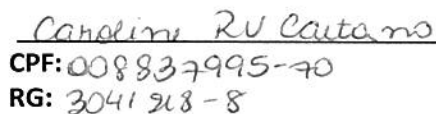 Caroline RV Caetano
CPF: 008837995-70
RG: 3041218-8